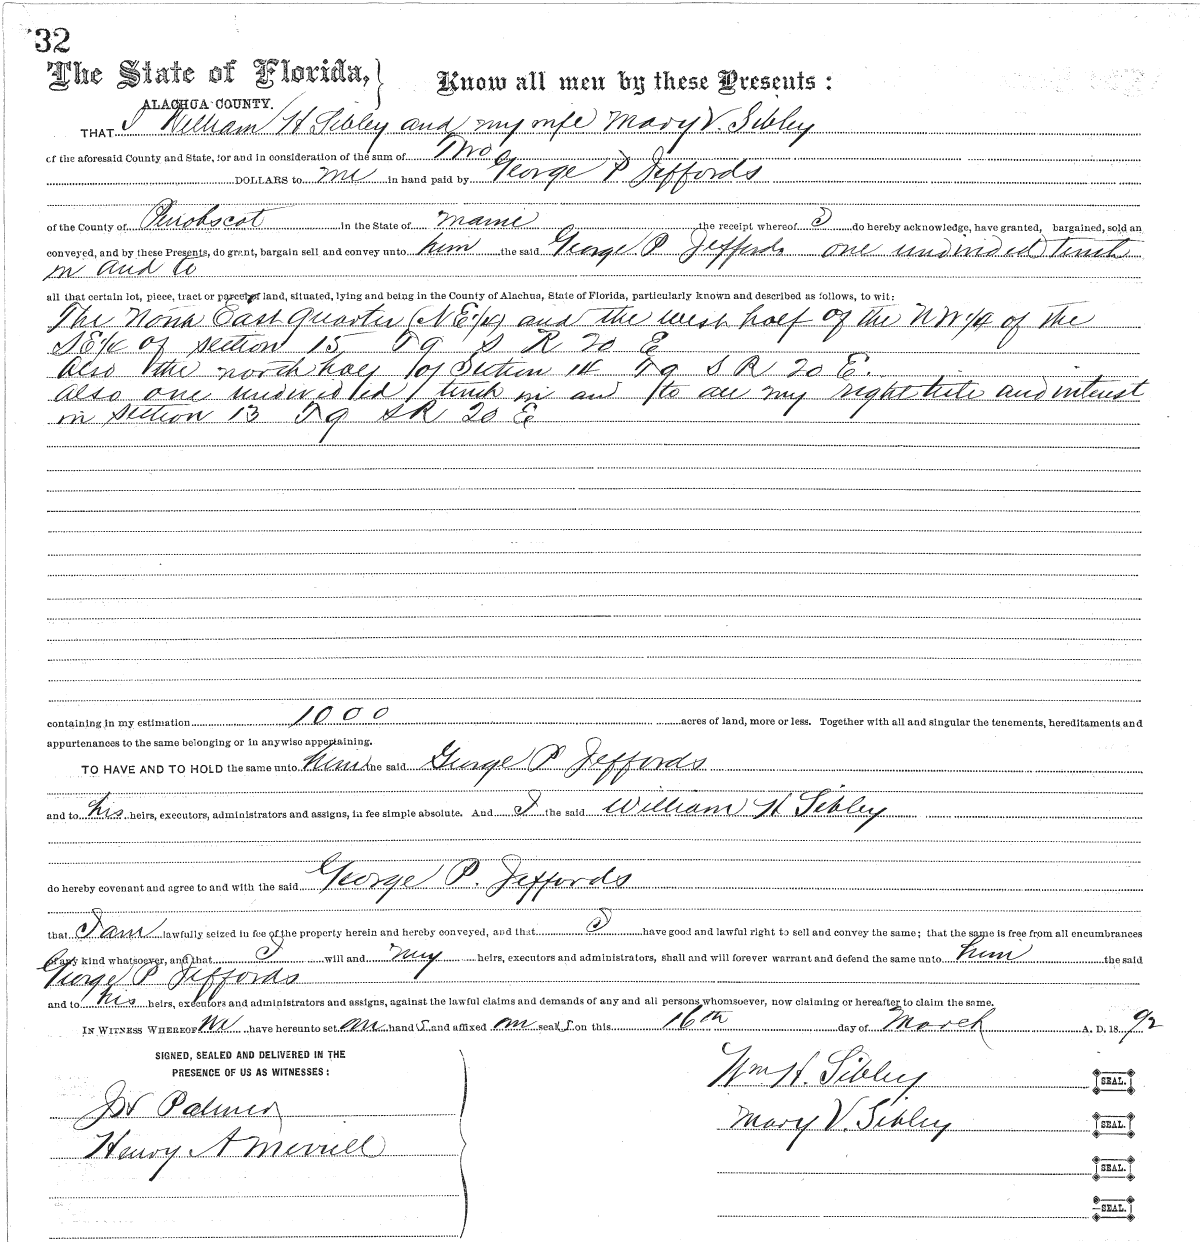 32
The State of Florida,} Know all men by these Presents:
ALACHUA COUNTY.
THAT I William H Sibley and my wife Mary V. Sibley
of the aforesaid County and State, for and in consideration of the sum of Two
DOLLARS to me in hand paid by George P Jeffords
of the County of Penobscot in the State of Maine the receipt whereof I do hereby acknowledge, have granted, bargained, sold an
conveyed, and by these Presents, do grant, bargain sell and convey unto him the said George P Jeffords one undivided tenth
in and to
all that certain lot, piece, tract or parcel of land, situated, lying and being in the County of Alachua, State of Florida, particularly known and described as follows, to wit:
The North East Quarter (NE1/4) and the west half of the NW1/4 of the
SE1/4 of section 15 T9 S R 20 E
Also the north half of Section 14 T9 S R 20 E.
also one undivided tenth in and to all my right title and interest
in section 13 T9 S R 20 E
containing in my estimation 1000 acres of land, more or less. Together with all and singular the tenements, hereditaments and
appurtenances to the same belonging or in anywise appertaining.
TO HAVE AND TO HOLD the same unto him the said George P Jeffords
and to his heirs, executors, administrators and assigns, in fee simple absolute. And I the said William H Sibley
do hereby covenant and agree to and with the said George P. Jeffords
that I am lawfully seized in fee of the property herein and hereby conveyed, and that I have good and lawful right to sell and convey the same; that the same is free from all encumbrances
of any kind whatsoever, and that I will and my heirs, executors and administrators, shall and will forever warrant and defend the same unto him the said
George P Jeffords
and to his heirs, executors and administrators and assigns, against the lawful claims and demands of any and all persons whomsoever, now claiming or hereafter to claim the same.
IN WITNESS WHEREOF We have hereunto set our hands and affixed our seals on this 16th day of March A. D. 1892
SIGNED, SEALED AND DELIVERED IN THE
PRESENCE OF US AS WITNESSES:
Wm H. Sibley SEAL.
Palmer
Mary V. Sibley SEAL.
Henry A Merrill
SEAL.
SEAL.